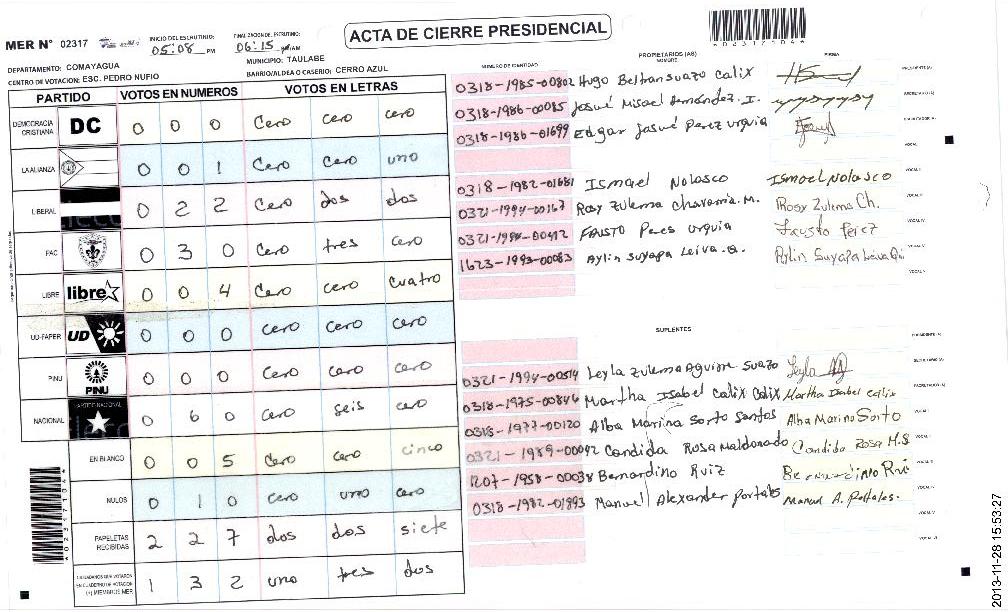 MER N° 02317
INICIO DEL ESCRUTINIO: 05:08 PM
FINALIZACION DE ESCRUTINIO: 06:15 PM
ACTA DE CIERRE PRESIDENCIAL
DEPARTAMENTO: COMAYAGUA
MUNICIPIO: TAULABE
CENTRO DE VOTACION: ESC. PEDRO NUFIO
BARRIO/ALDEA O CASERIO: CERRO AZUL
PARTIDO VOTOS EN NUMEROS VOTOS EN LETRAS
DEMOCRACIA CRISTIANA DC 0 0 0 Cero cero cero
LA ALIANZA 0 0 1 Cero cero uno
LIBERAL 0 2 2 Cero dos dos
PAC 0 3 0 Cero tres cero
LIBRE libre 0 0 4 Cero cero cuatro
UD-FAPER UD 0 0 0 cero cero cero
PINU PINU 0 0 0 cero cero cero
NACIONAL PARTIDO NACIONAL 0 6 0 cero seis cero
EN BLANCO 0 0 5 cero cero cinco
NULOS 0 1 0 cero uno cero
PAPELETAS RECIBIDAS 2 2 7 dos dos siete
CIUDADANOS QUE VOTARON EN CUADERNO DE VOTACION (+) MIEMBROS MER 1 3 2 uno tres dos
NUMERO DE IDENTIDAD
PROPIETARIOS (AS)
NOMBRE
FIRMA
0318-1985-00802 Hugo Beltran suazo Calix
0318-1986-00085 Josué Misael Hernández. I.
0318-1986-01699 Edgar Josué Perez urquia
0318-1982-01681 Ismael Nolasco Ismael Nolasco
0321-1994-00167 Rosy Zulema Chavarria M. Rosy Zulema Ch.
FAUSTO Peres urquia Fausto Pérez
1623-1993-00083 Aylin Suyapa Leiva. Q. Aylin Suyapa Leiva
SUPLENTES
0321-1994-00514 Leyla Zulema Aguirre Suazo Leyla
0318-1975-00846 Martha Isabel Calix Calix Martha Isabel calix
0318-1977-00120 Alba Marina Sorto Santos Alba Marina Sorto
0321-1989-00092 Candida Rosa Maldonado Candida Rosa M.S
1207-1958-00038 Bernardino Ruiz Bernardino
0318-1982-01893 Manuel Alexander Portales Manuel A. Portales.
2013-11-28 15:53:27